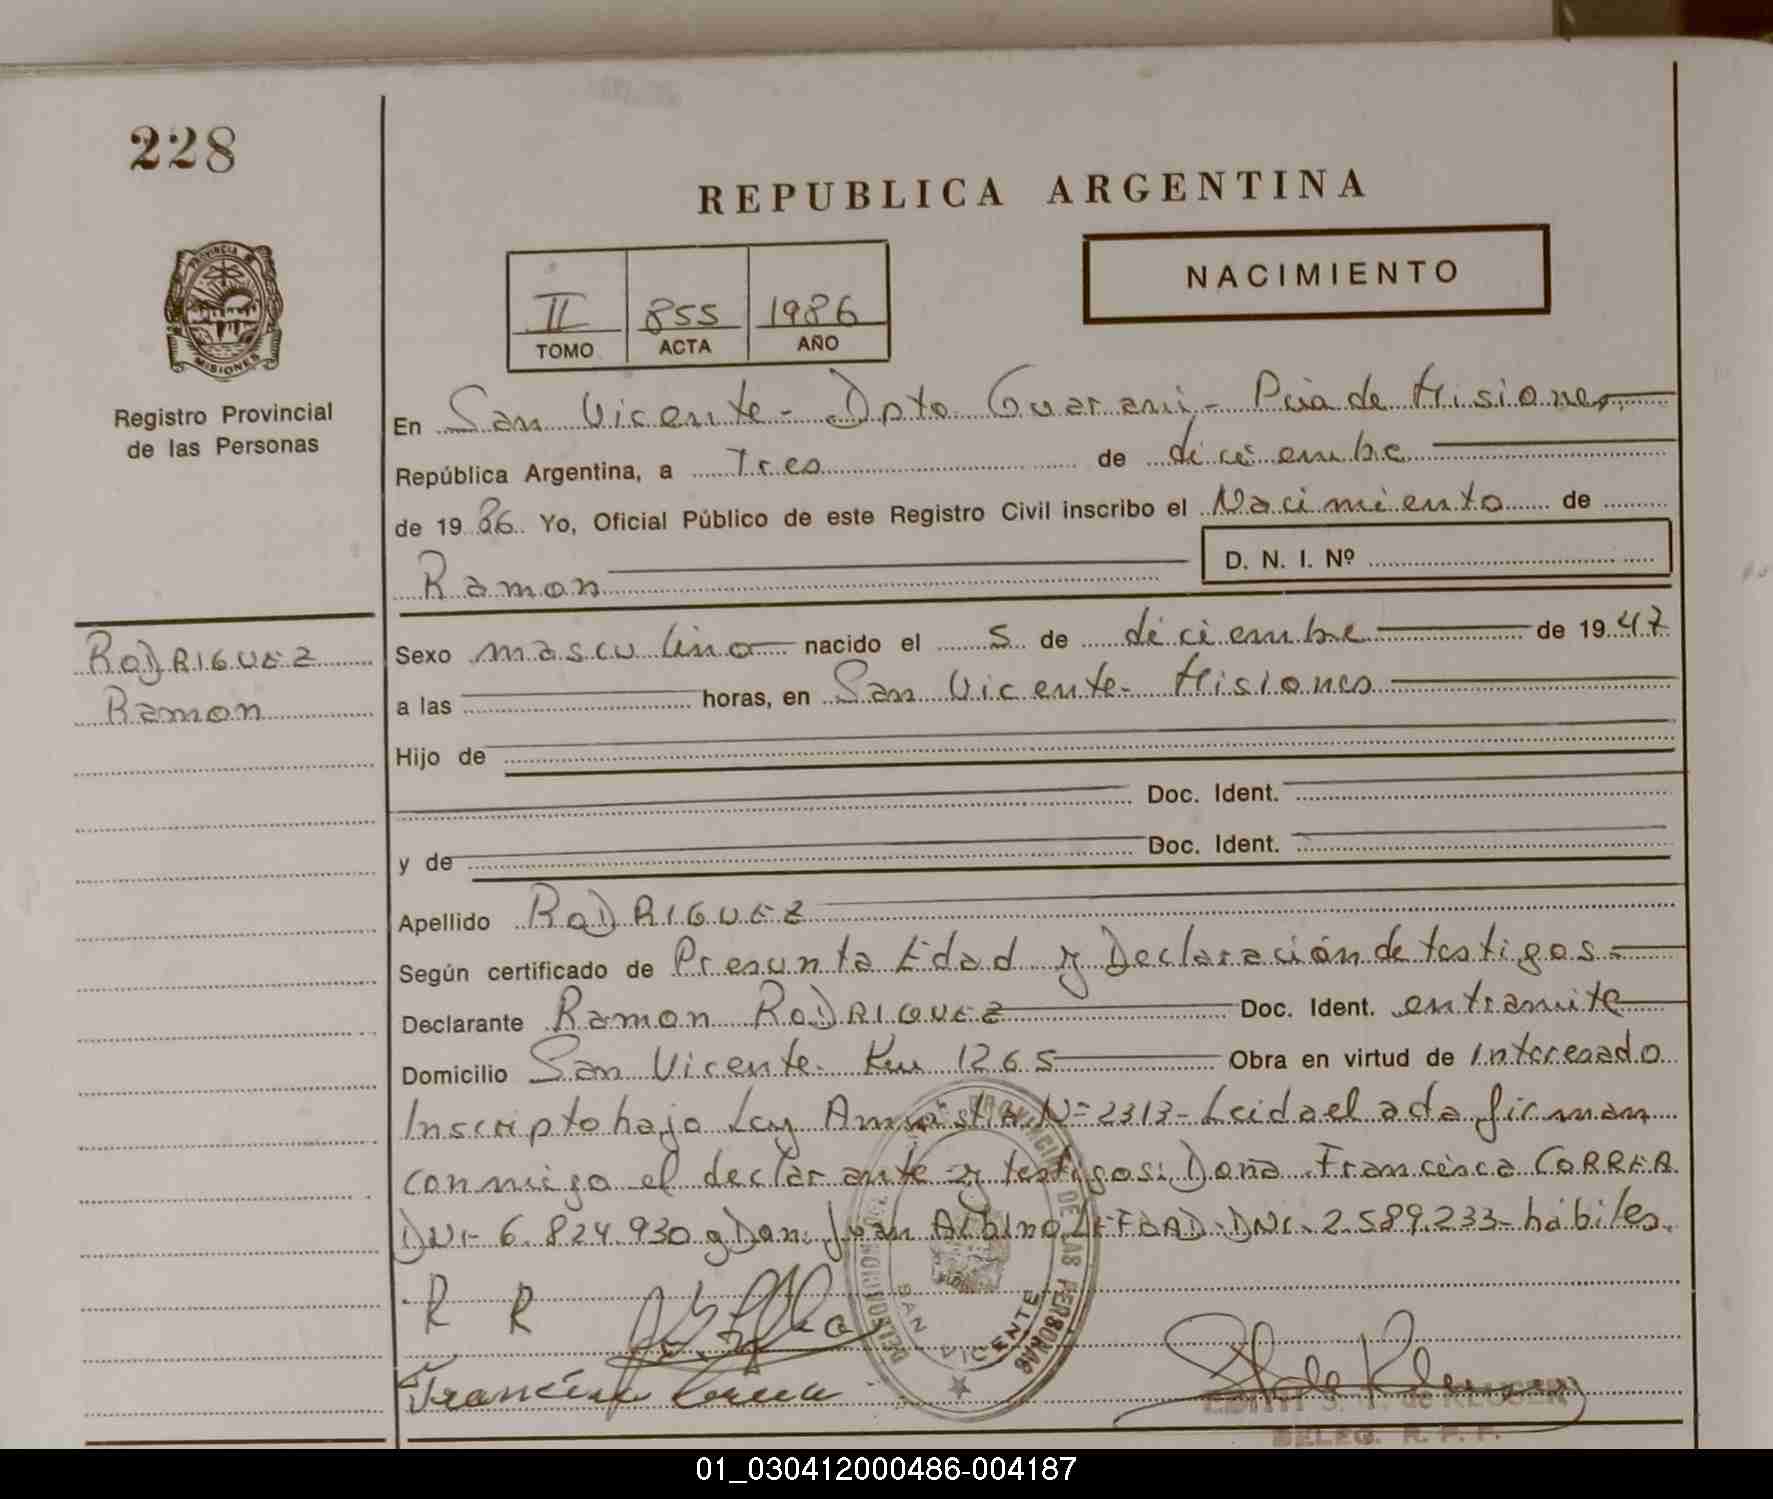 228
REPUBLICA ARGENTINA
NACIMIENTO
II 855 1986
TOMO ACTA AÑO
PROVINCIA DE MISIONES
Registro Provincial
de las Personas
En San Vicente - Dpto Guarani - Pcia de Misiones
República Argentina, a Tres de diciembre
de 1986. Yo, Oficial Público de este Registro Civil inscribo el Nacimiento de
Ramon D. N. I. Nº
RODRIGUEZ
Ramon
Sexo masculino nacido el 5 de diciembre de 1947
a las horas, en San Vicente - Misiones
Hijo de
Doc. Ident.
y de Doc. Ident.
Apellido RODRIGUEZ
Según certificado de Presunta Edad y Declaración de testigos -
Declarante Ramon RODRIGUEZ Doc. Ident. entramite
Domicilio San Vicente. Km 1265 Obra en virtud de Interesado
Inscripto bajo Ley Amnistia Nº 2313 - Leida el acta firman
conmigo el declarante y testigos: Doña Francisca CORREA
DNI- 6.824.930 y Don: Juan Albino DNI. 2.589.233 - hábiles.
R R
Francisca Correa
PROVINCIAL DE LAS PERSONAS
SAN VICENTE
EDITH S. de KLUGER
DELEG. R. P. P.
01_030412000486-004187